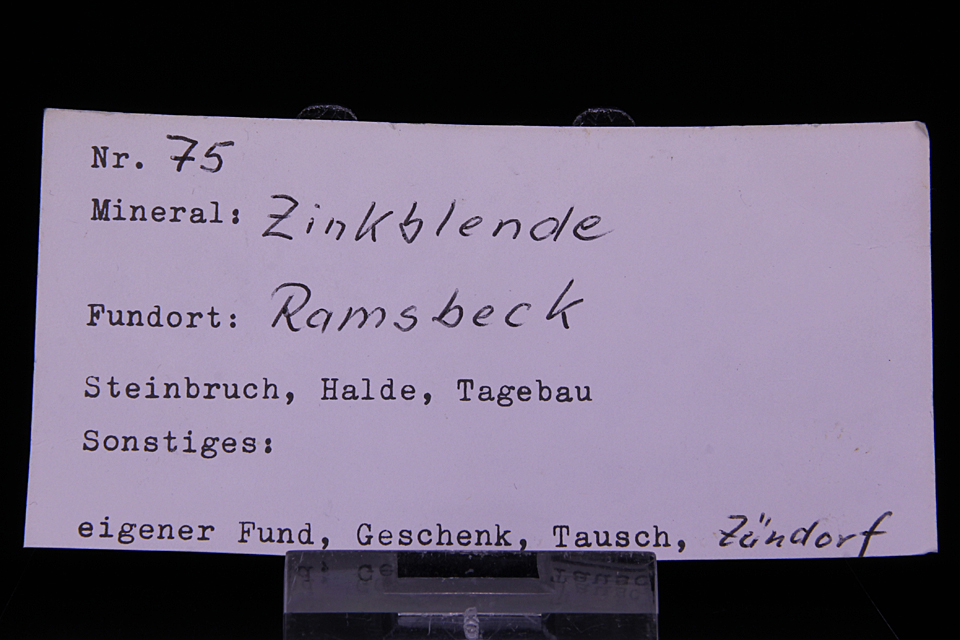 Nr. 75
Mineral: Zinkblende
Fundort: Ramsbeck
Steinbruch, Halde, Tagebau
Sonstiges:
eigener Fund, Geschenk, Tausch, Zündorf